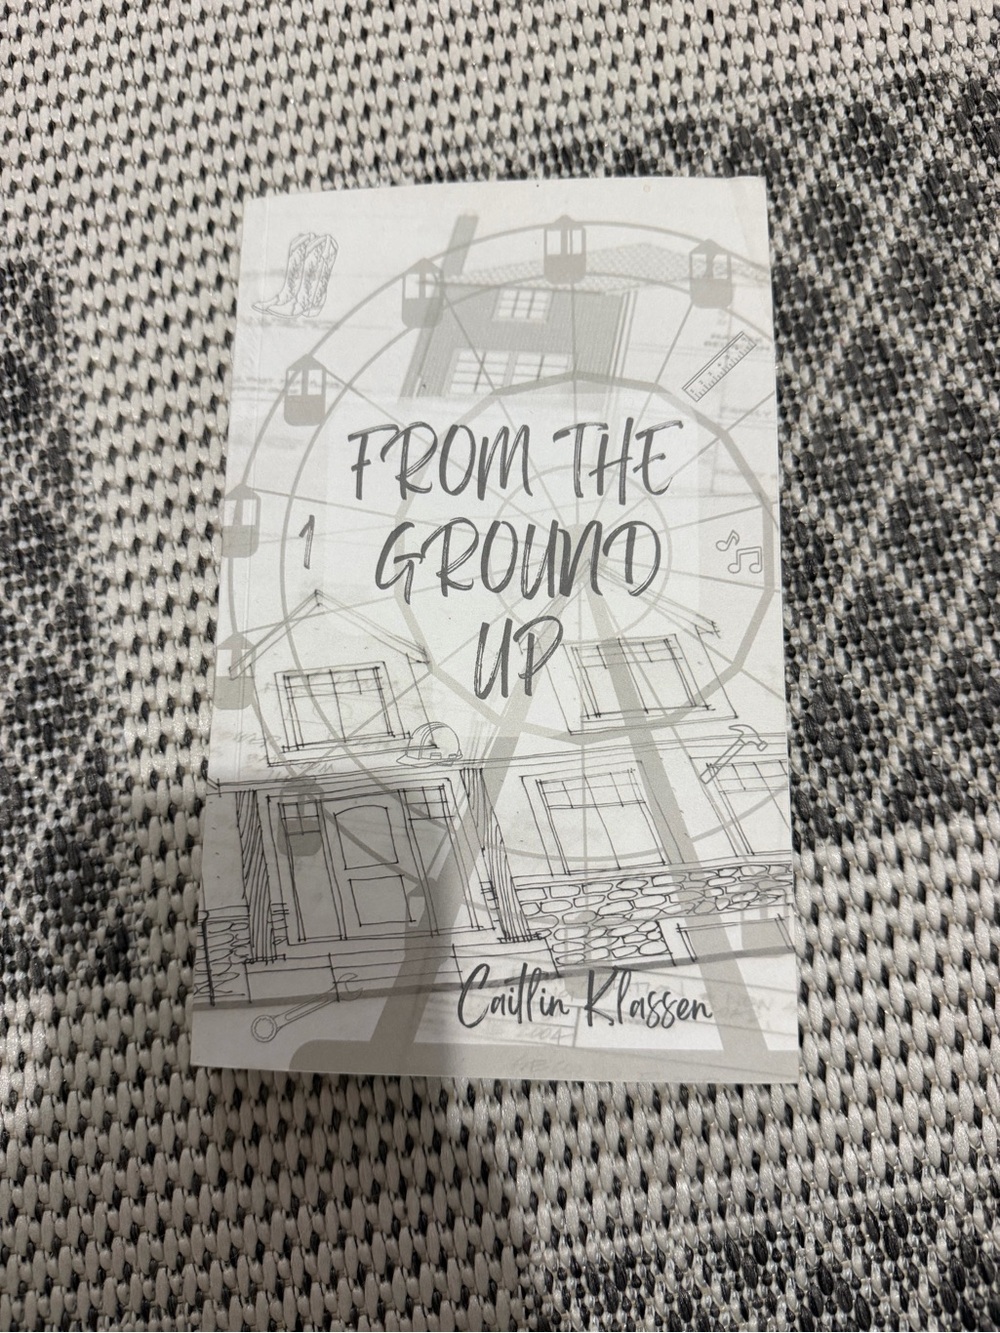 FROM THE
GROUND
UP
Caitlin Klassen